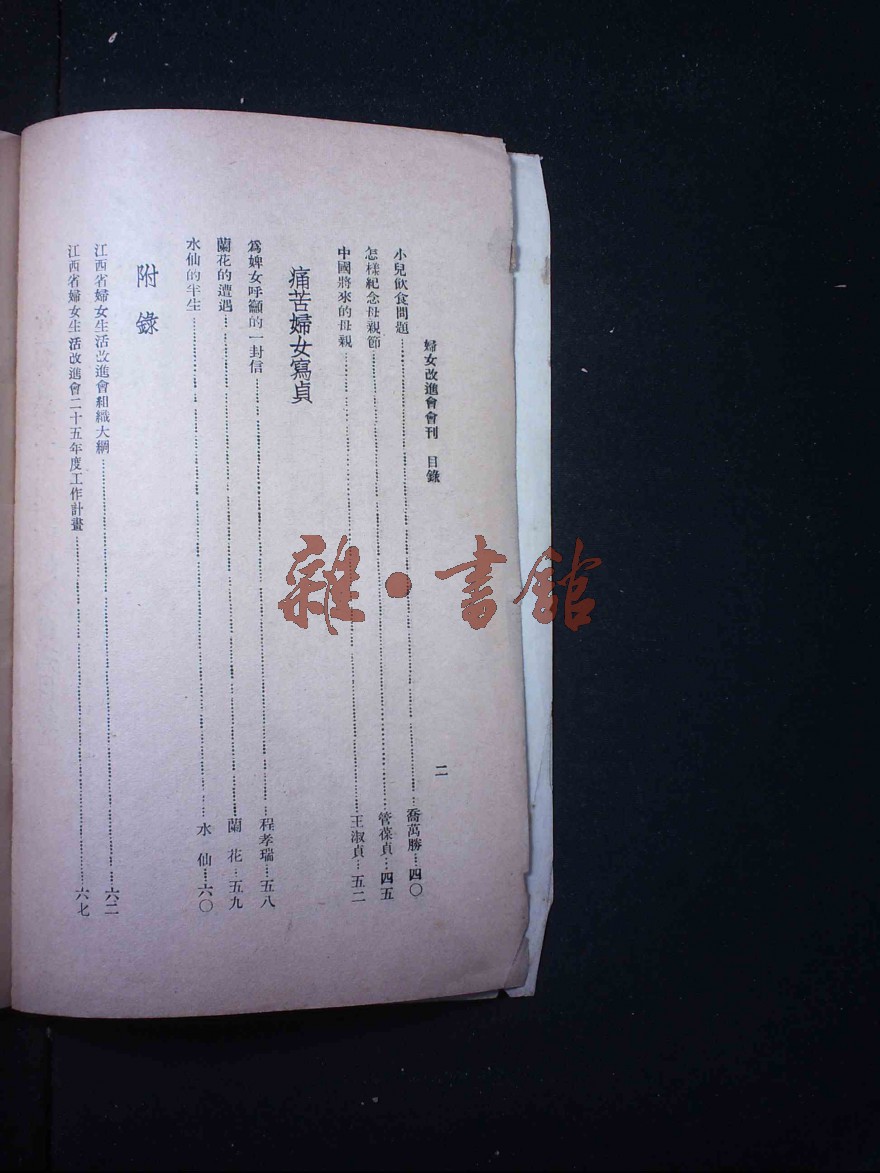 婦女改進會會刊　目錄　二
小兒飲食問題……喬萬勝……四〇
怎樣紀念母親節……管葆貞…四五
中國將來的母親……王淑貞…五二
痛苦婦女寫貞
爲婢女呼籲的一封信……程孝瑞…五八
蘭花的遭遇……蘭　花…五九
水仙的半生……水　仙…六〇
附錄
江西省婦女生活改進會組織大綱……六二
江西省婦女生活改進會二十五年度工作計畫……六七
雜・書館